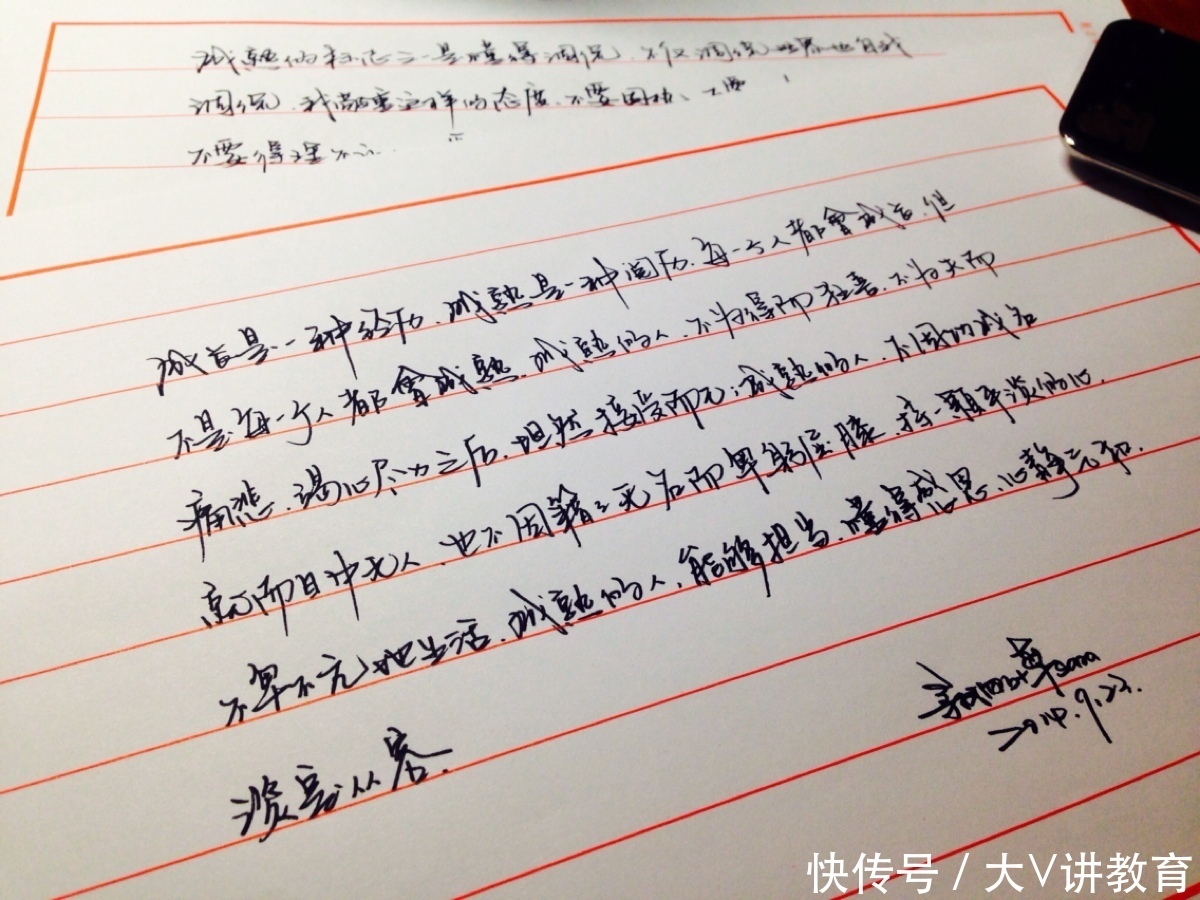 成熟的标志之一是懂得调侃.不仅调侃世界也自我
调侃.我敬重这样的态度.不要固执、不要
不要得理不
成长是一种经历.成熟是一种阅历.每一个人都會成长.但
不是每一个人都會成熟.成熟的人.不为得而狂喜.不为失而
痛悲.竭心尽力之后.坦然接受而已;成熟的人.不因功成名
就而目中无人.也不因籍籍无名而卑躬屈膝.持一颗平淡的心.
不卑不亢地生活.成熟的人.能够担当.懂得感恩.心静气和.
淡定从容.
2014.9.23.
快传号 / 大V讲教育